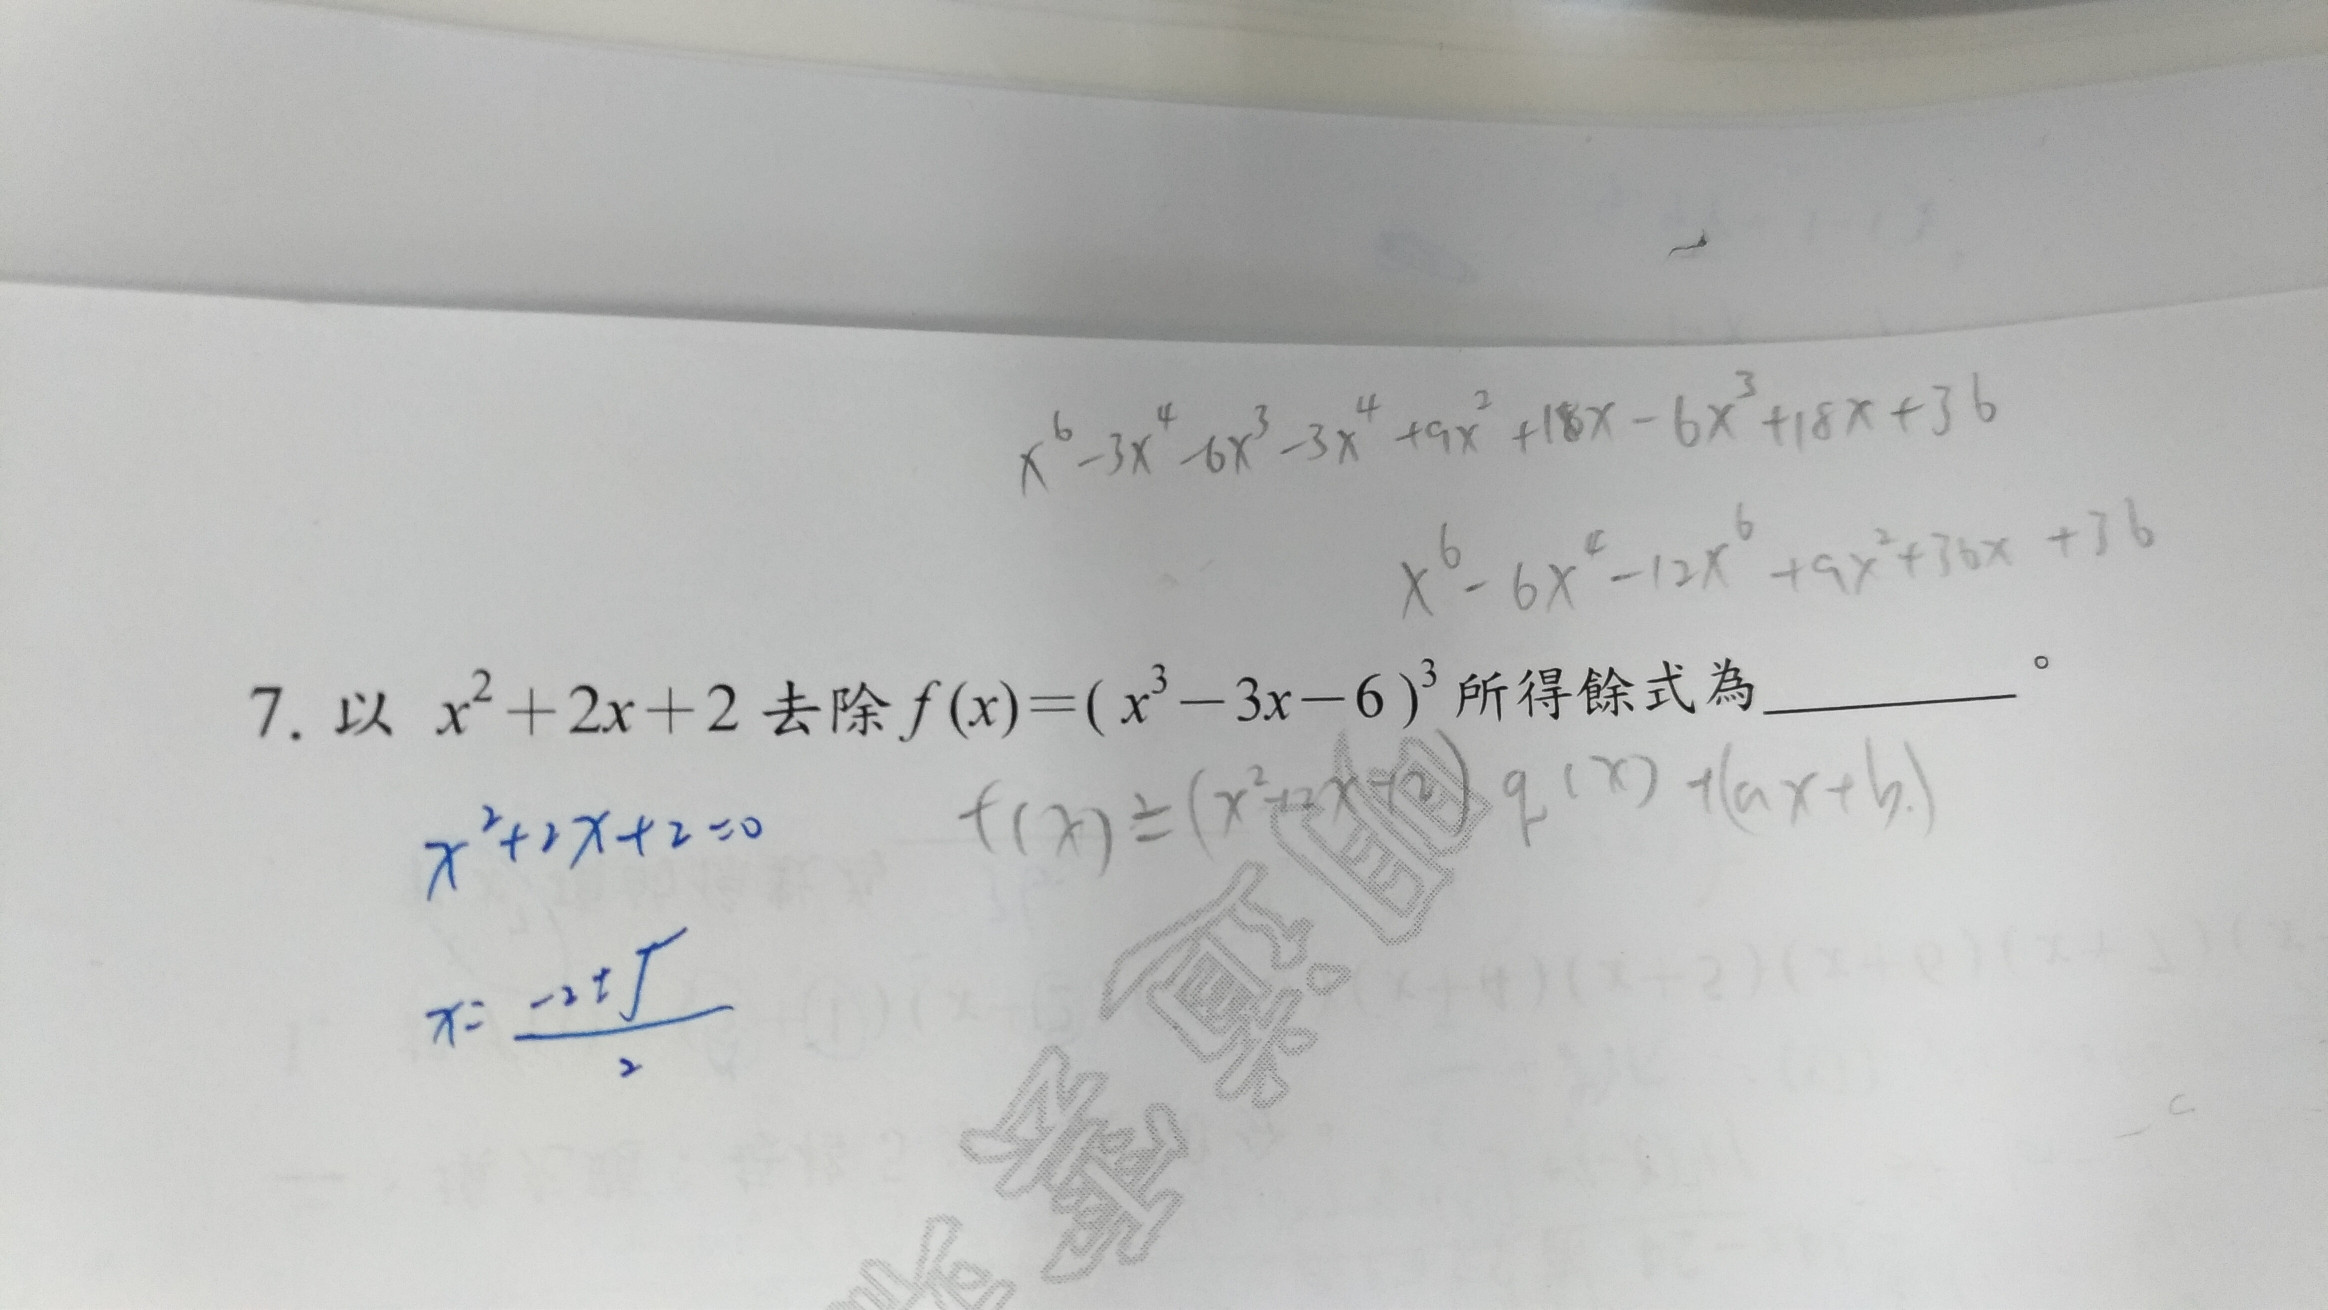 x⁶-3x⁴-6x³-3x⁴+9x²+18x-6x³+18x+36
x⁶-6x⁴-12x⁶+9x²+36x+36
7. 以 x²+2x+2 去除 f(x)=(x³-3x-6)³ 所得餘式為________。
f(x)=(x²+2x+2)q(x)+(ax+b)
x²+2x+2=0
x=(-2±√)/2